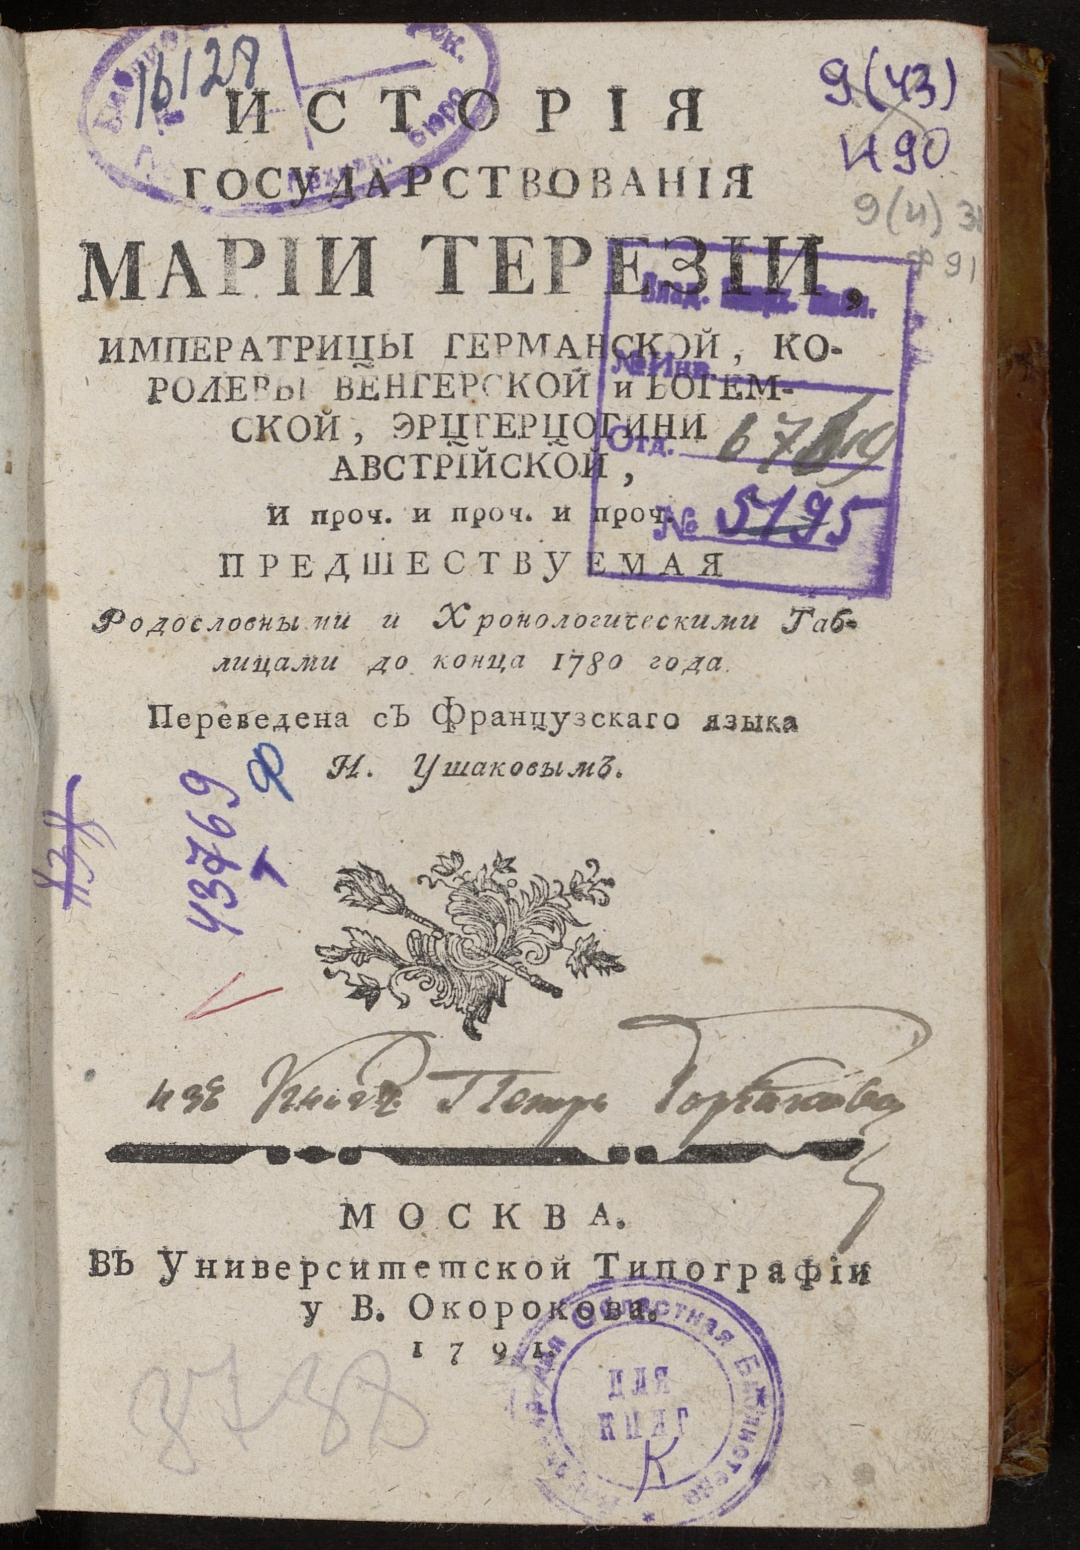 16128
9(43)
И90
9(и)
Ф91
ИСТОРІЯ
ГОСУДАРСТВОВАНІЯ
МАРІИ ТЕРЕЗІИ,
ИМПЕРАТРИЦЫ ГЕРМАНСКОЙ, КО-
РОЛЕВЫ ВЕНГЕРСКОЙ и БОГЕМ-
СКОЙ, ЭРЦГЕРЦОГИНИ
АВСТРІЙСКОЙ,
И проч. и проч. и проч.
ПРЕДШЕСТВУЕМАЯ
Родословными и Хронологическими Таб-
лицами до конца 1780 года.
Переведена съ Французскаго языка
Н. Ушаковымъ.
№ Инв.
Отд.
№ 5195
43769
изъ Книгъ Петра Горбакова
МОСКВА.
Въ Университетской Типографіи
у В. Окорокова.
1791.
Областная Библиотека
ДЛЯ
КНИГ
К